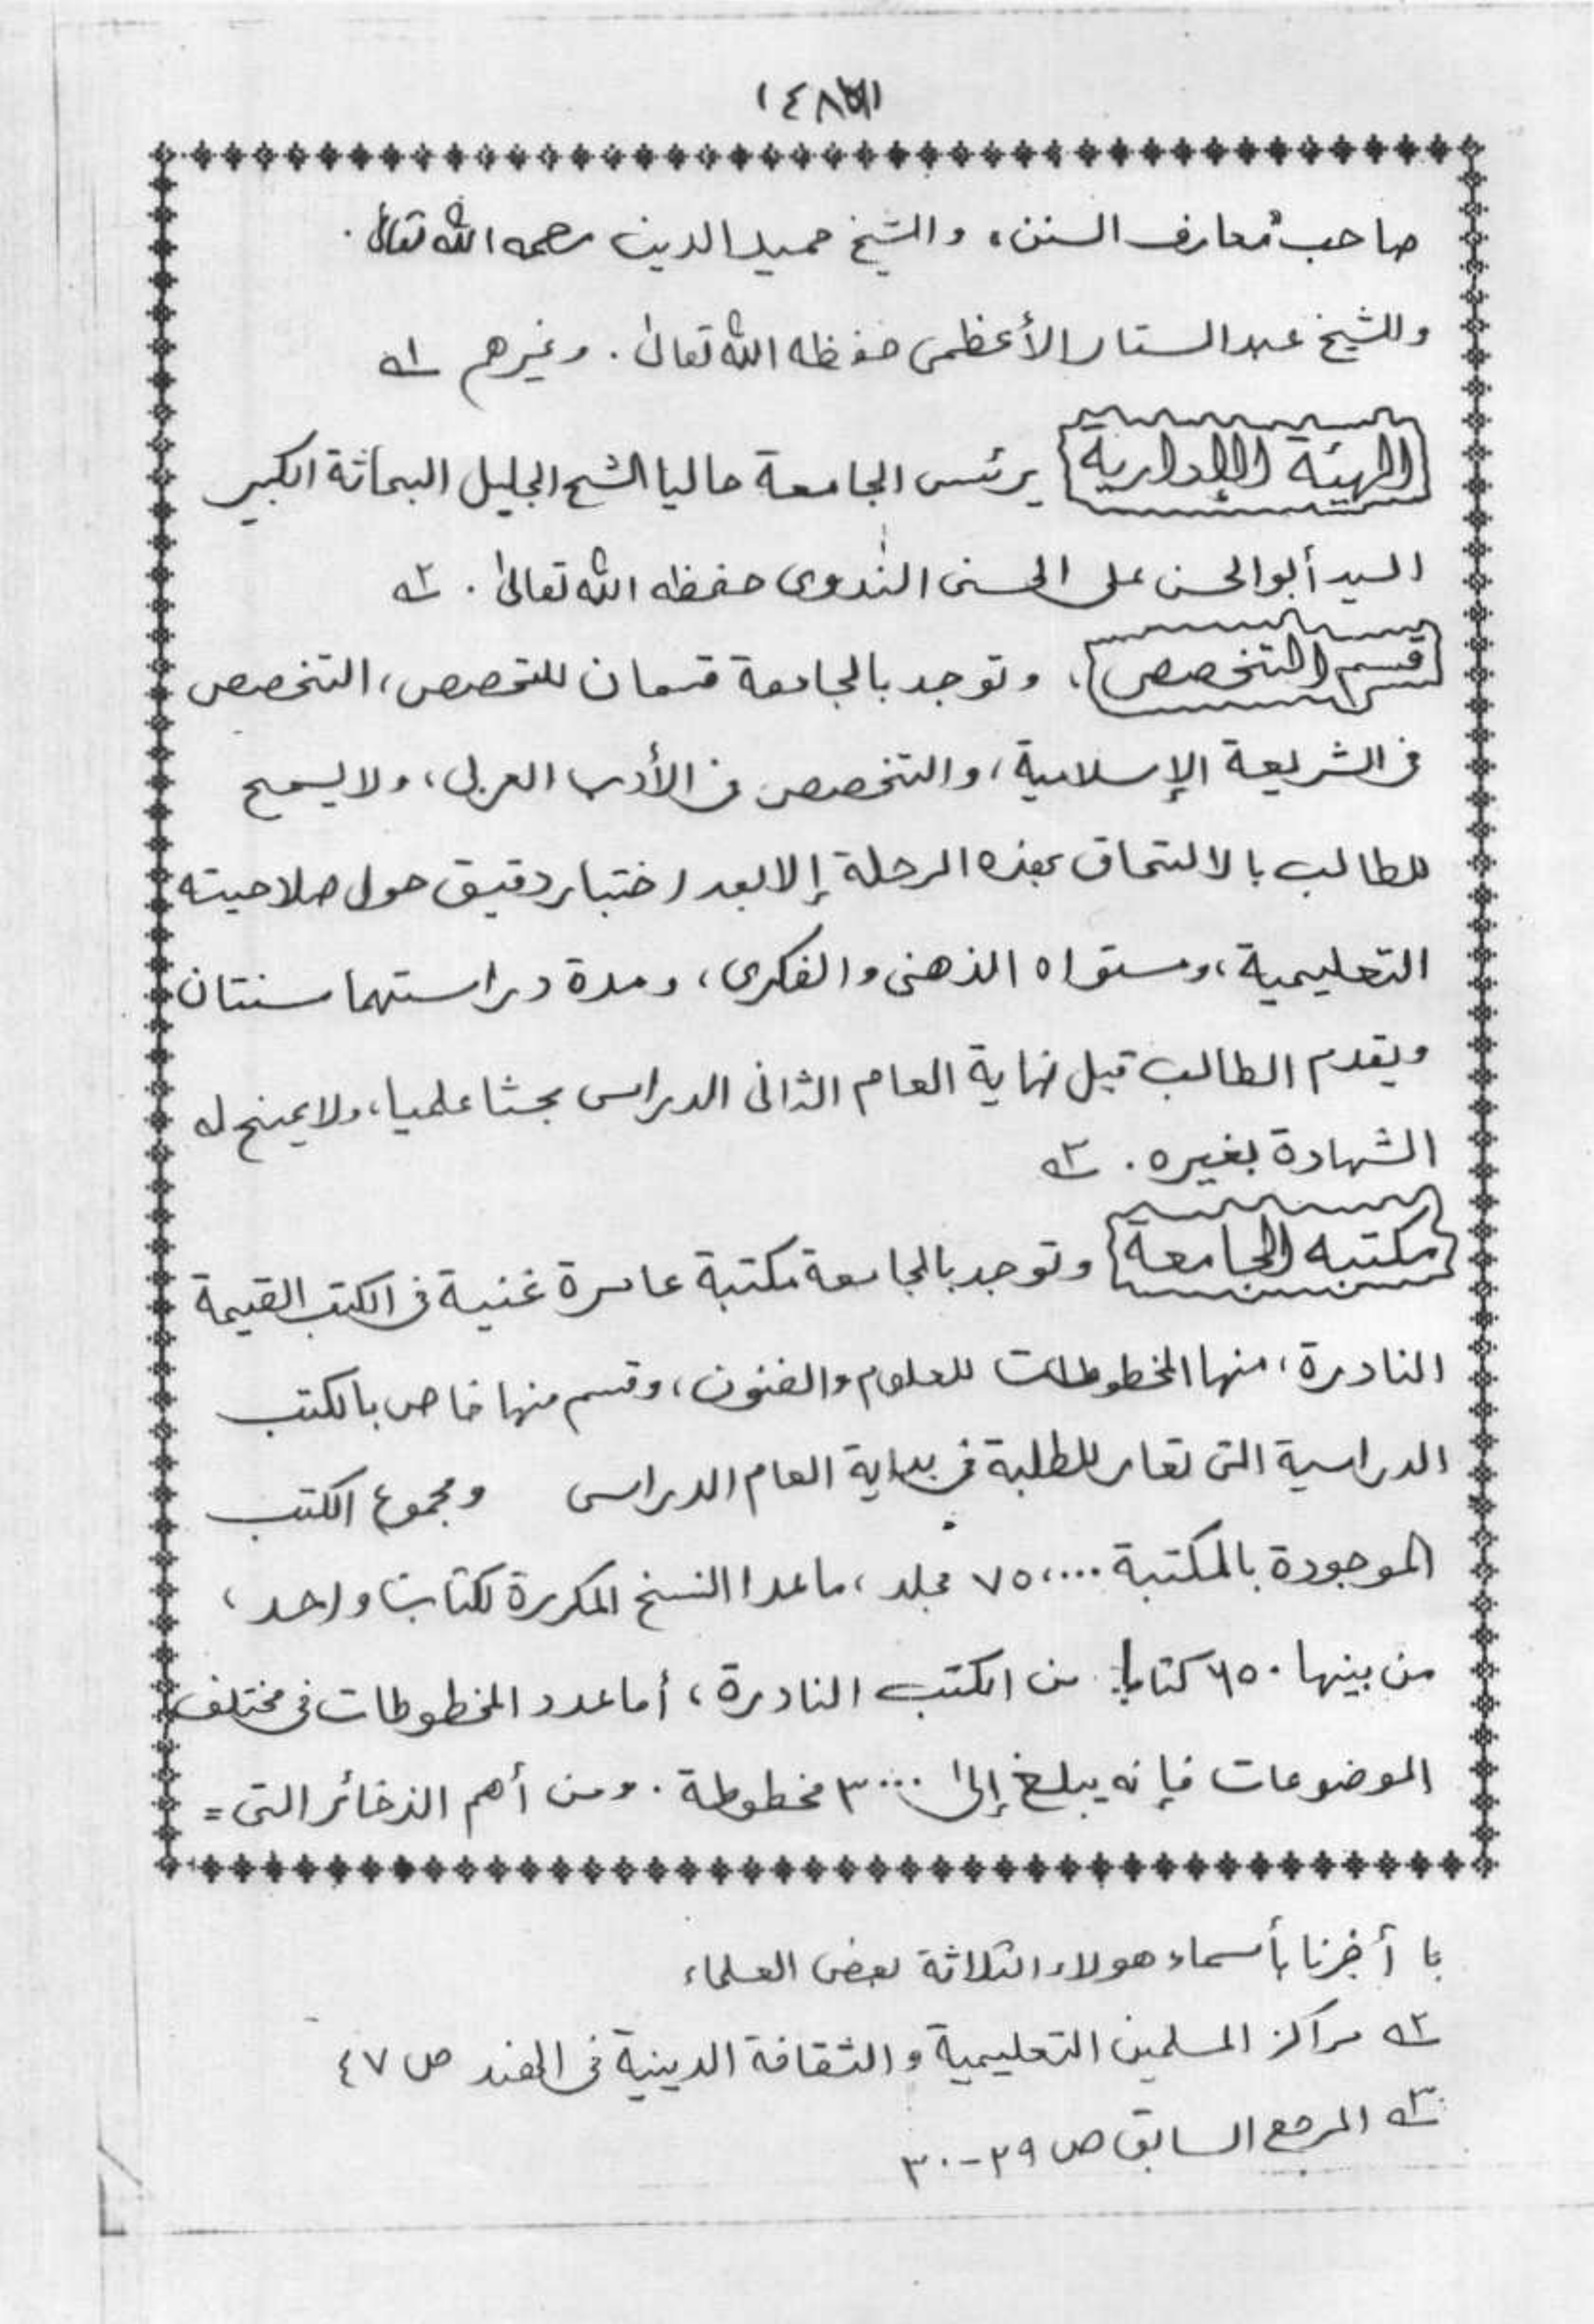 صاحب معارف السنن، والشيخ حميد الدين رحمه الله تعالى.
وللشيخ عبد الستار الأعظمى حفظه الله تعالىٰ. وغيرهم ١ـه
الهيئة الإدارية يرئس الجامعة حاليا الشيخ الجليل البحاثة الكبير
السيد أبو الحسن على الحسنى الندوى حفظه الله تعالىٰ. ٢ـه
قسم التخصص، وتوجد بالجامعة قسمان للتخصص، التخصص
فى الشريعة الإسلامية، والتخصص فى الأدب العربى، ولا يسمح
للطالب بالالتحاق بهذه المرحلة إلا بعد اختبار دقيق حول صلاحيته
التعليمية، ومستواه الذهنى والفكرى، ومدة دراستهما سنتان
ويقدم الطالب قبل نهاية العام الثانى الدراسى بحثا علميا، ولا يمنح له
الشهادة بغيره. ٣ـه
مكتبه الجامعة وتوجد بالجامعة مكتبة عامرة غنية فى الكتب القيمة
النادرة، منها المخطوطات للعلوم والفنون، وقسم منها خاص بالكتب
الدراسية التى تعار للطلبة فى بداية العام الدراسى ومجموع الكتب
الموجودة بالمكتبة ٧٥،٠٠٠ مجلد، ماعدا النسخ المكررة لكتاب واحد،
من بينها ٦٥٠ كتابا من الكتب النادرة، أما عدد المخطوطات فى مختلف
الموضوعات فإنه يبلغ إلىٰ ٣٠٠٠ مخطوطة. ومن أهم الذخائر التى =
أخبرنا بأسماء هولاء الثلاثة بعض العلماء
٢ـه مراكز المسلمين التعليمية والثقافة الدينية فى الهند ص ٤٧
٣ـه المرجع السابق ص ٢٩-٣٠